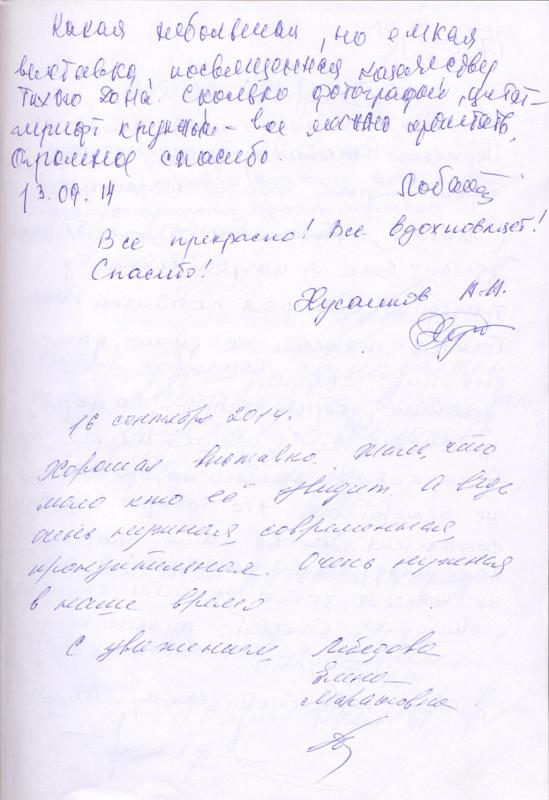 Какая небольшая, но емкая
выставка, посвященная казачеству
Тихого Дона. Сколько фотографий, цитат-
шрифт крупный - все можно прочитать.
Огромное спасибо
13.09.14
Все прекрасно! Все вдохновляет!
Спасибо!
Хусаинов А.Н.
16 сентября 2014г.
Хорошая выставка. Жаль, что
мало кто её увидит. А ведь
очень нужная современная
пронзительная. Очень нужная
в наше время
С уважением Лебедева
Елена
Маратовна